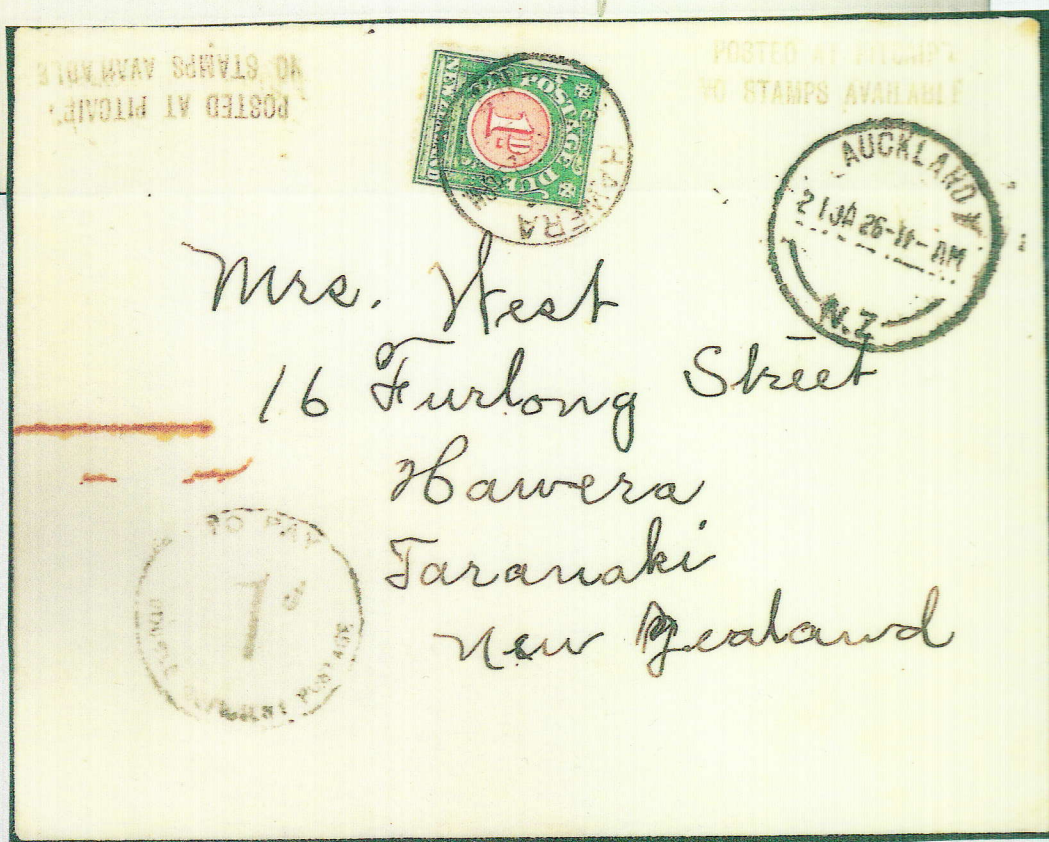 POSTED AT PITCAIR
NO STAMPS AVAILABLE
POSTED AT PITCAIR
NO STAMPS AVAILABLE
NEW ZEALAND POSTAGE DUE
1D
HAWERA
AUCKLAND
21 JA 26-11-AM
N.Z.
Mrs. West
16 Furlong Street
Hawera
Taranaki
New Zealand
TO PAY
1d
SINGLE DEFICIENT POSTAGE